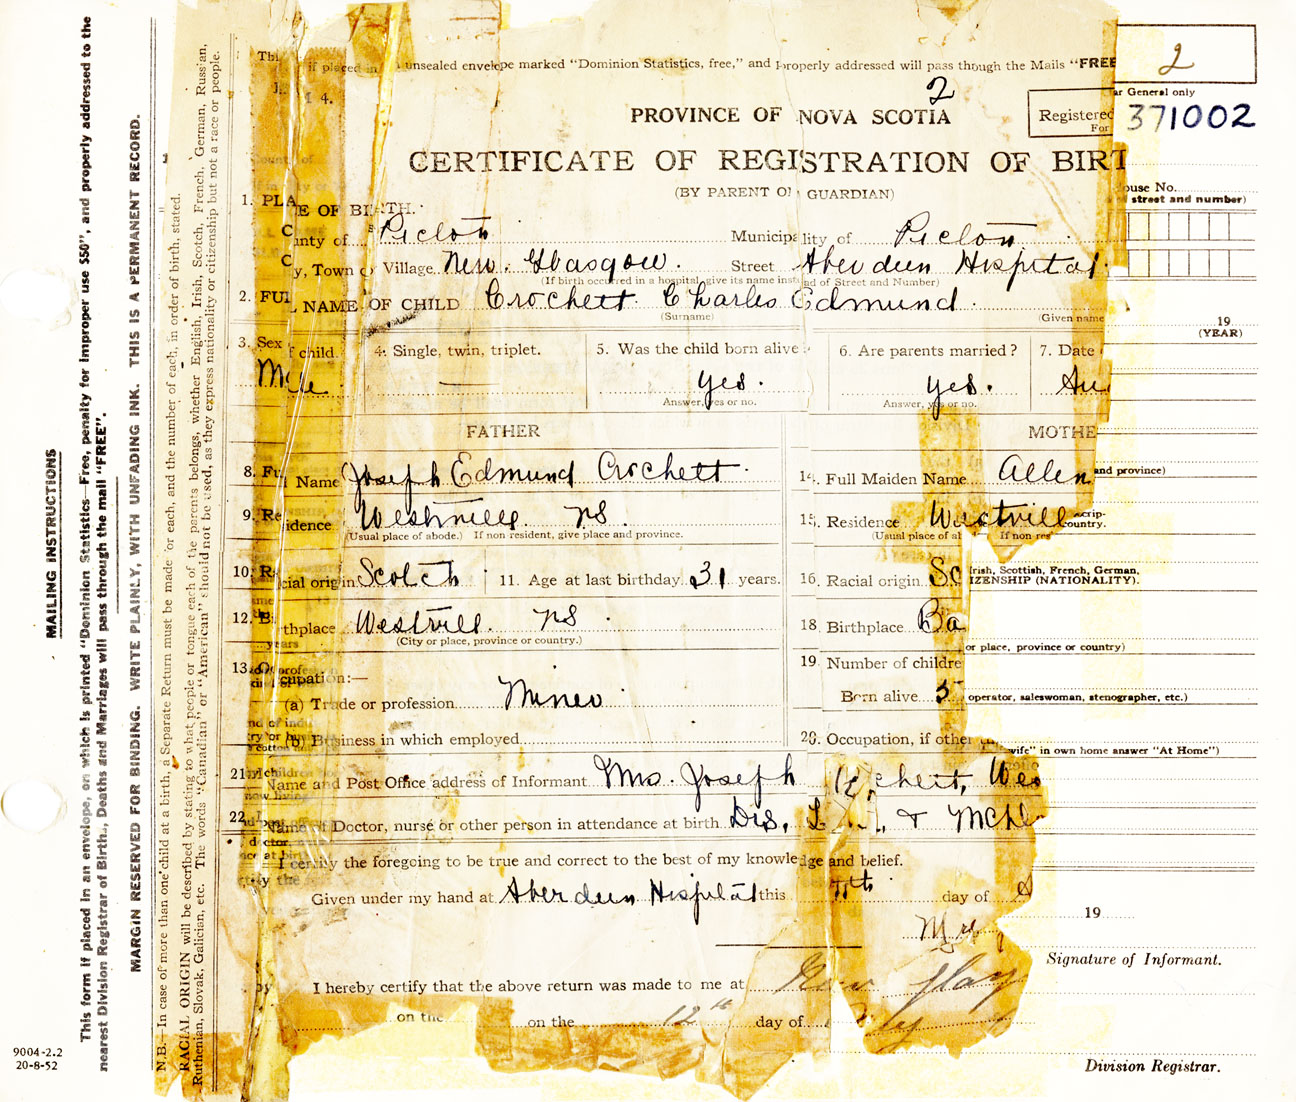 MAILING INSTRUCTIONS
This form if placed in an envelope, on which is printed "Dominion Statistics—Free, penalty for improper use $50", and properly addressed to the
nearest Division Registrar of Births, Deaths and Marriages will pass through the mail "FREE".
MARGIN RESERVED FOR BINDING. WRITE PLAINLY, WITH UNFADING INK. THIS IS A PERMANENT RECORD.
N.B.—In case of more than one child at a birth, a Separate Return must be made for each, and the number of each, in order of birth, stated.
RACIAL ORIGIN will be described by stating to what people or tongue each of the parents belongs, whether English, Irish, Scotch, French, German, Russian,
Ruthenian, Slovak, Galician, etc. The words "Canadian" or "American" should not be used, as they express nationality or citizenship but not a race or people.
9004-2.2
20-8-52
2
Thi if placed in unsealed envelope marked "Dominion Statistics, free," and properly addressed will pass though the Mails "FREE
4.
2
PROVINCE OF NOVA SCOTIA
ar General only
Registered
For
371002
CERTIFICATE OF REGISTRATION OF BIRT
(BY PARENT OR GUARDIAN)
ouse No.
street and number)
1. PLACE OF BIRTH.
County of Pictou Municipality of Pictou
City, Town or Village New Glasgow. Street Aberdeen Hospital.
(If birth occurred in a hospital give its name instead of Street and Number)
2. FULL NAME OF CHILD Crochett Charles Edmund
(Surname) (Given name
19
(YEAR)
3. Sex of child. 4. Single, twin, triplet. 5. Was the child born alive 6. Are parents married? 7. Date
Male — yes. yes. Au
Answer, yes or no. Answer, yes or no.
FATHER MOTHE
8. Full Name Joseph Edmund Crochett 14. Full Maiden Name Allen
and province)
9. Residence Westville NS. 15. Residence Westvill
(Usual place of abode.) If non resident, give place and province. (Usual place of ab If non res
crip-
ountry.
10. Racial origin Scotch 11. Age at last birthday 31 years. 16. Racial origin Sc
Irish, Scottish, French, German,
IZENSHIP (NATIONALITY).
12. Birthplace Westvill NS 18. Birthplace Ba
(City or place, province or country.)
or place, province or country)
13. Occupation:— 19. Number of childre
(a) Trade or profession Miner Born alive 5
operator, saleswoman, stenographer, etc.)
(b) Business in which employed 20. Occupation, if othe
wife" in own home answer "At Home")
21. Name and Post Office address of Informant Mrs. Joseph chett, Wes
22. Name of Doctor, nurse or other person in attendance at birth Drs. & McLe
I certify the foregoing to be true and correct to the best of my knowledge and belief.
Given under my hand at Aberdeen Hospital this 11th day of
19
Mrs
Signature of Informant.
I hereby certify that the above return was made to me at New Glasg
on the on the 12th day of
Division Registrar.